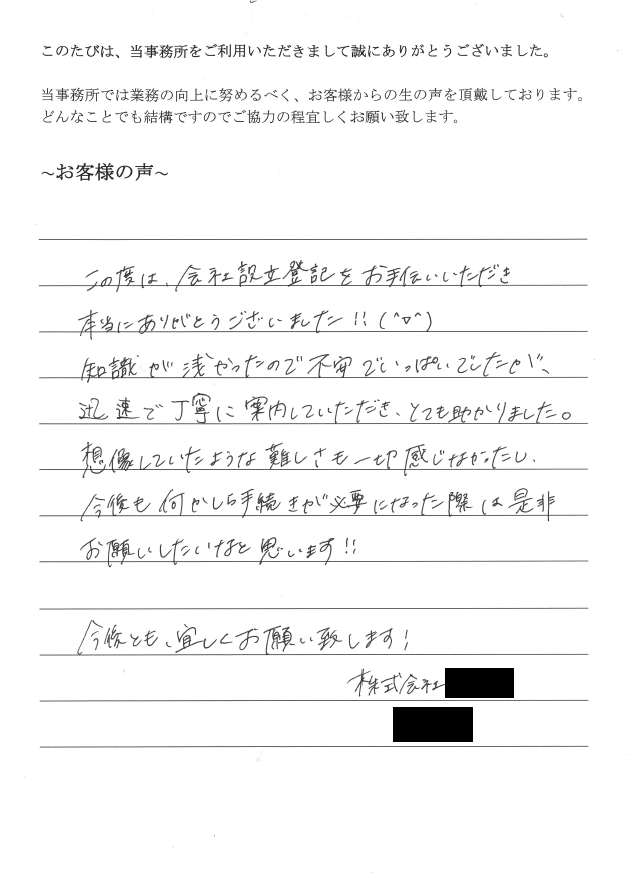 このたびは、当事務所をご利用いただきまして誠にありがとうございました。
当事務所では業務の向上に努めるべく、お客様からの生の声を頂戴しております。
どんなことでも結構ですのでご協力の程宜しくお願い致します。
~お客様の声~
この度は、会社設立登記をお手伝いいただき
本当にありがとうございました!!(^▽^)
知識が浅かったので不安でいっぱいでしたが、
迅速で丁寧に案内していただき、とても助かりました。
想像していたような難しさも一切感じなかったし、
今後も何かしら手続きが必要になった際は是非
お願いしたいなと思います!!
今後とも、宜しくお願い致します!
株式会社